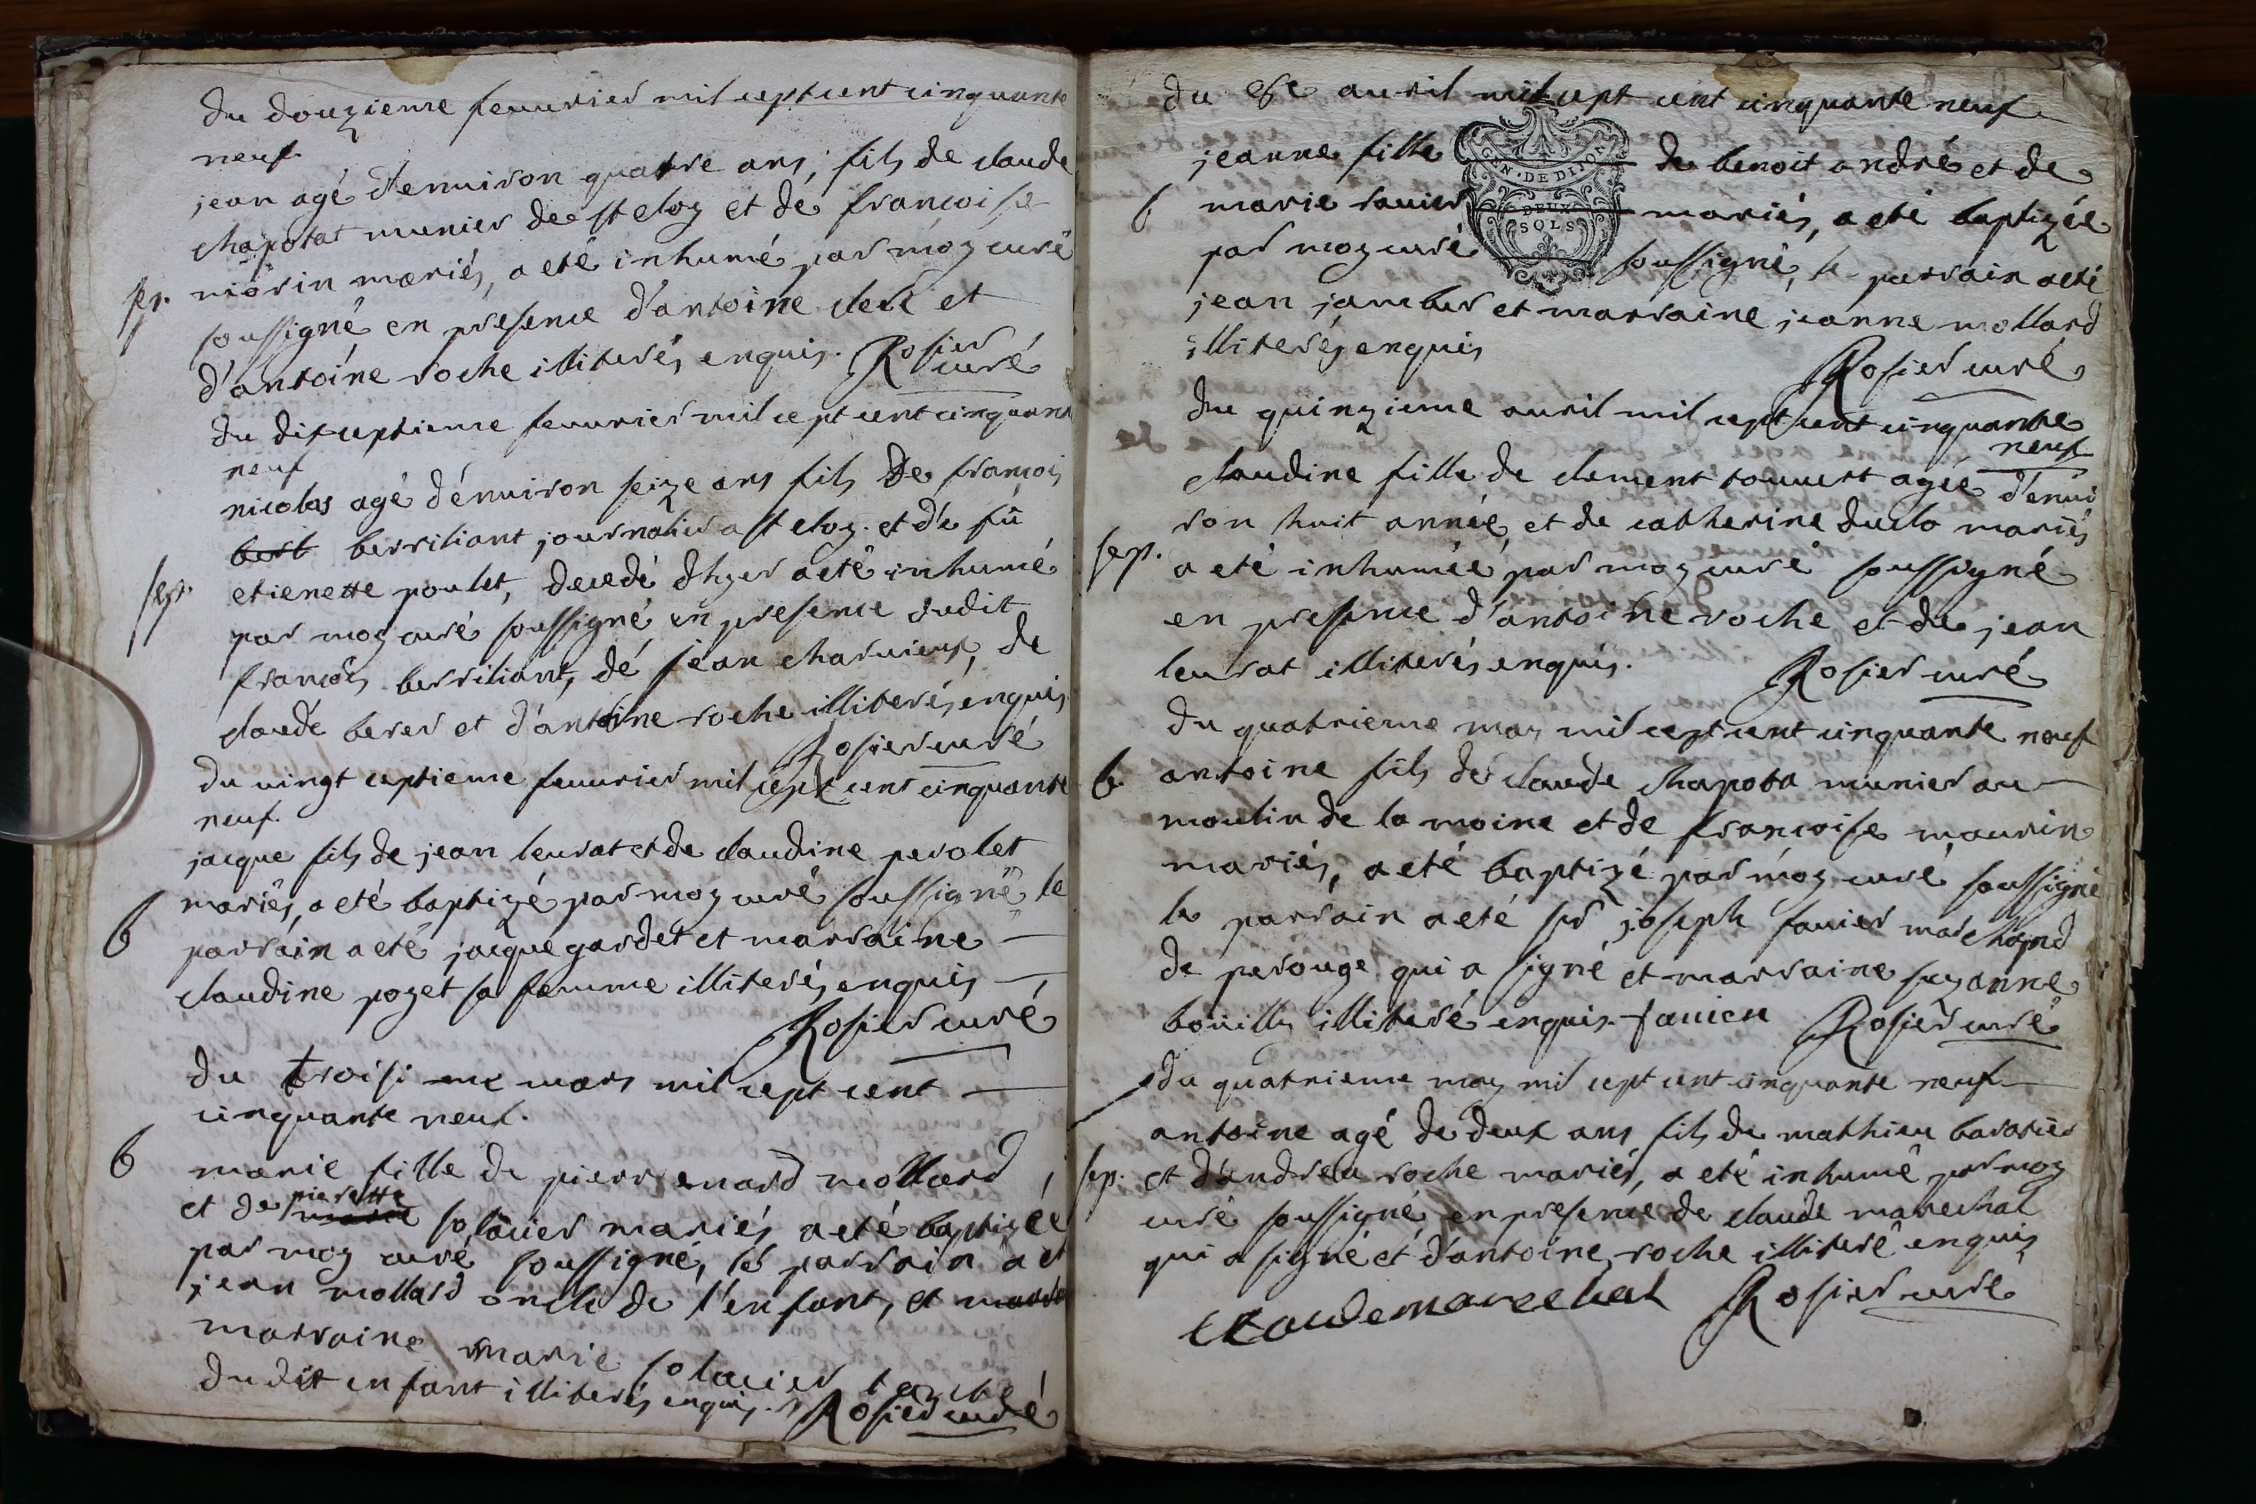 du douzieme feuurier mil cept cent cinquante
neuf.
jean agé d'enuiron quatre ans, fils de claude
chapotat munier de st eloy et de françoise
sep. morin mariés, a eté inhumé par moy curé
soussigné en presence d'antoine clerc et
d'antoine roche illiterés enquis. Rosier
curé
du dix ceptieme feuurier mil cept cent cinquante
neuf
nicolas agé d'enuiron seize ans fils De françois
berriliant journalier a st eloy. et de fû
sep. etienette poulet, decedé d'hyer a eté inhumé
par moy curé soussigné en presence dudit
françois berriliant, de jean charuieux, de
claude berer et d'antoine roche illiterés enquis.
Rosier curé
du uingt ceptieme feuurier mil cept cent cinquante
neuf.
jacque fils de jean leurat et de claudine perolet
mariés, a eté baptizé par moy curé soussigné le
b parrain a eté jacque gardet et marraine
claudine pozet sa femme illiterés enquis
Rosier curé
du troisi me mars mil cept cent
cinquante neuf.
b marie fille de pierre mard mollard
et de pierette solacier mariés a eté baptizée
par moy curé soussigné, le parrain a et
jean mollard oncle de l'enfant, et
marraine marie solacier tante
dudit enfant illiterés enquis. Rosier curé
du 8e auril mil cept cent cinquante neuf
jeanne fille de benoit andré et de
GEN. DE DIJON
b marie rauier mariés, a eté baptizée
DEUX SOLS
par moy curé soussigné, le parrain a eté
jean jamber et marraine jeanne mollard
illiterés enquis
Rosier curé
du quinzieme auril mil cept cent cinquante
neuf
claudine fille de clement touuert agée d'enui
ron huit année, et de catherine duclo mariés
sep. a eté inhumée par moy curé soussigné
en presence d'antoine roche et de jean
leurat illiterés enquis. Rosier curé
du quatrieme may mil cept cent cinquante neuf
b antoine fils de claude chapota munier au
moulin de la moine et de françoise maurin
mariés, a eté baptizé par moy curé soussigné
le parrain a eté sr joseph fauier marchand
de perouge qui a signé et marraine suzanne
bouilly illiteré enquis. fauier Rosier curé
du quatrieme may mil cept cent cinquante neuf
antoine agé de deux ans fils de mathieu baratier
sep. et d'andrea roche mariés, a eté inhumé par moy
curé soussigné en presence de claude marechal
qui a signé et d'antoine roche illiteré enquis
claude marechal Rosier curé